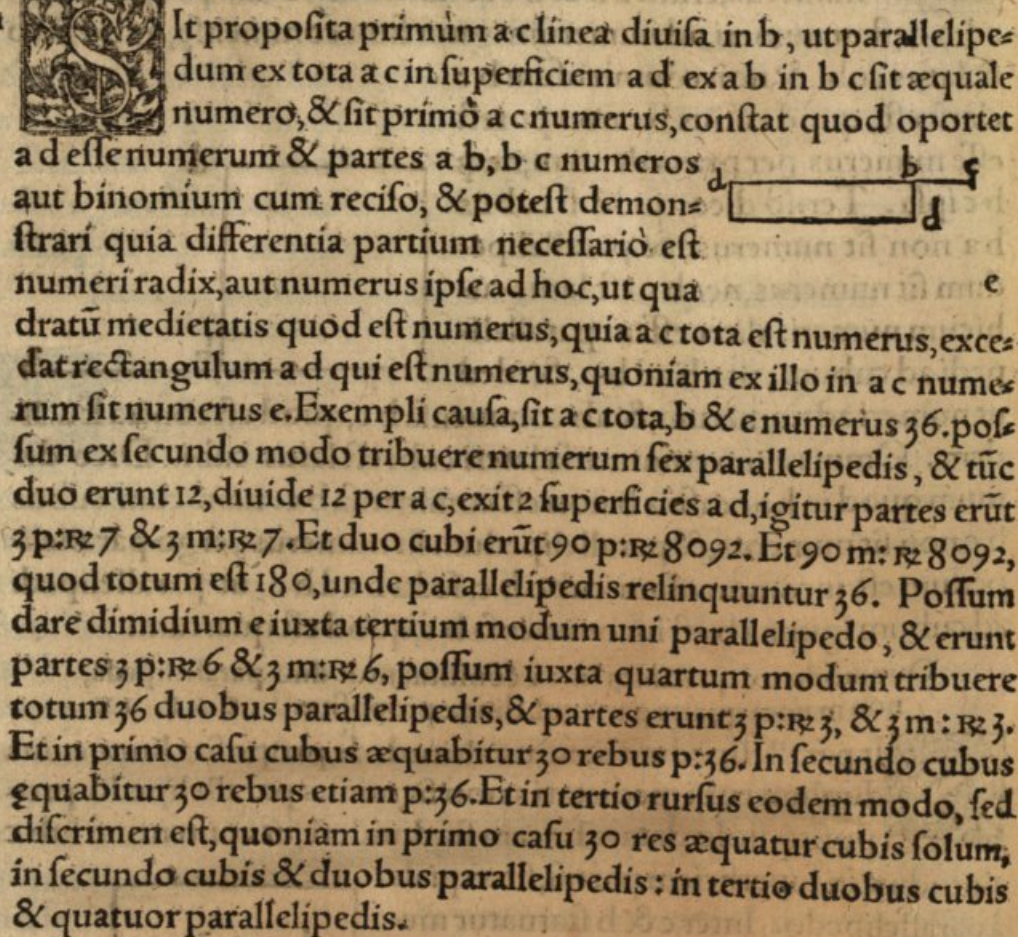 SIt proposita primùm a c linea diuisa in b, ut parallelipe=
dum ex tota a c in superficiem a d ex a b in b c sit æquale
numero, & sit primò a c numerus, constat quod oportet
a d esse numerum & partes a b, b c numeros
aut binomium cum reciso, & potest demon=
strari quia differentia partium necessariò est
numeri radix, aut numerus ipse ad hoc, ut qua
d b c
d
e
dratũ medietatis quod est numerus, quia a c tota est numerus, exce=
dat rectangulum a d qui est numerus, quoniam ex illo in a c nume=
rum fit numerus e. Exempli causa, sit a c tota, b & e numerus 36. pos=
sum ex secundo modo tribuere numerum sex parallelipedis, & tũc
duo erunt 12, diuide 12 per a c, exit 2 superficies a d, igitur partes erũt
3 p:℞ 7 & 3 m:℞ 7. Et duo cubi erũt 90 p:℞ 8092. Et 90 m: ℞ 8092,
quod totum est 180, unde parallelipedis relinquuntur 36. Possum
dare dimidium e iuxta tertium modum uni parallelipedo, & erunt
partes 3 p:℞ 6 & 3 m:℞ 6, possum iuxta quartum modum tribuere
totum 36 duobus parallelipedis, & partes erunt 3 p:℞ 3, & 3 m: ℞ 3.
Et in primo casu cubus æquabitur 30 rebus p:36. In secundo cubus
ęquabitur 30 rebus etiam p:36. Et in tertio rursus eodem modo, sed
discrimen est, quoniam in primo casu 30 res æquatur cubis solum,
in secundo cubis & duobus parallelipedis: in tertio duobus cubis
& quatuor parallelipedis.